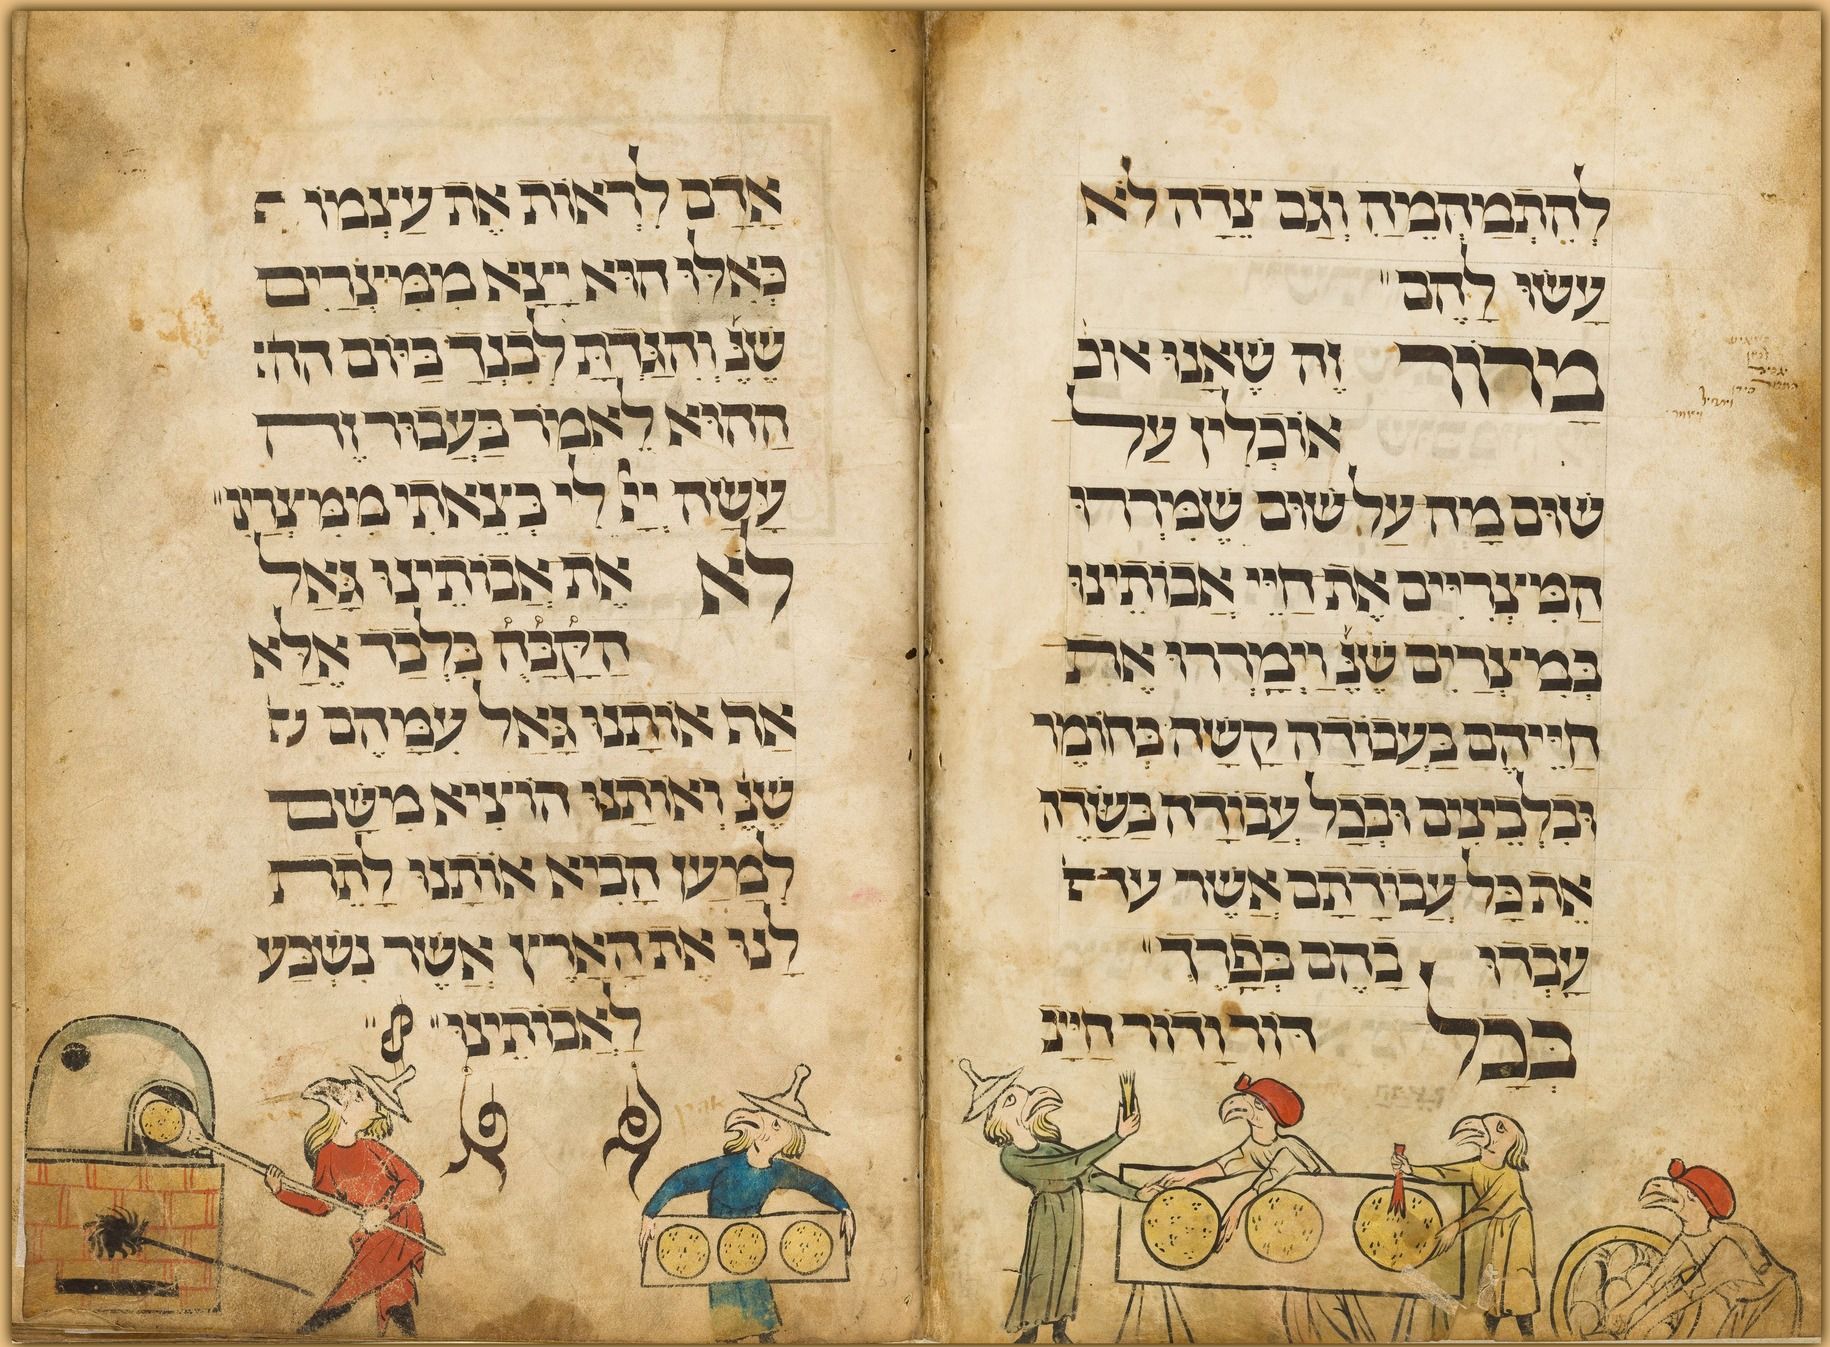 לְהִתְמַהְמֵהַּ וְגַם צֵדָה לֹא
עָשׂוּ לָהֶם״
מָרוֹר זֶה שֶׁאָנוּ אוכ
אוֹכְלִין עַל
שׁוּם מָה עַל שׁוּם שֶׁמֵּרְרוּ
הַמִּצְרִיִּים אֶת חַיֵּי אֲבוֹתֵינוּ
בְּמִצְרַיִם שֶׁנֶּ׳ וַיְמָרְרוּ אֶת
חַיֵּיהֶם בַּעֲבוֹדָה קָשָׁה בְּחוֹמֶר
וּבִלְבֵינִים וּבְכָל עֲבוֹדָה בַּשָּׂדֶה
אֶת כָּל עֲבוֹדָתָם אֲשֶׁר ע
עָבְדוּ בָהֶם בְּפָרֶךְ״
בְּכָל דּוֹר וָדוֹר חַיָּיב
אָדָם לִרְאוֹת אֶת עַצְמוֹ
כְּאִלּוּ הוּא יָצָא מִמִּצְרַיִם
שֶׁנֶּ׳ וְהִגַּדְתָּ לְבִנְךָ בַּיּוֹם הה
הַהוּא לֵאמֹר בַּעֲבוּר זֶה
עָשָׂה יְיָ לִי בְּצֵאתִי מִמִּצְרַיִם״
לֹא אֶת אֲבוֹתֵינוּ גָּאַל
הַקָּבָּ֯הֿ בִּלְבַד אֶלָּא
אַף אוֹתָנוּ גָּאַל עִמָּהֶם ש
שֶׁנֶּ׳ וְאוֹתָנוּ הוֹצִיא מִשָּׁם
לְמַעַן הָבִיא אוֹתָנוּ לָתֵת
לָנוּ אֶת הָאָרֶץ אֲשֶׁר נִשְׁבַּע
לַאֲבוֹתֵינוּ״